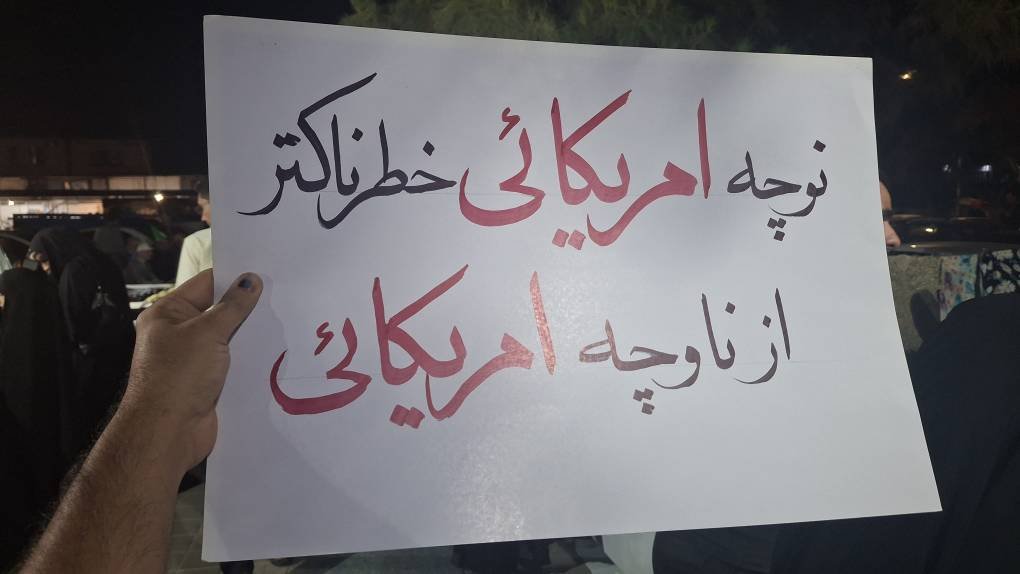 نوچه امریکائی خطرناکتر
از ناوچه امریکائی